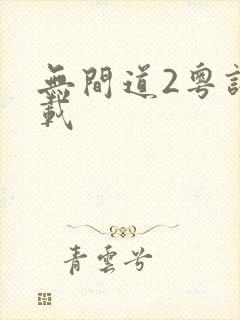 無間道2粵
載
青雲兮